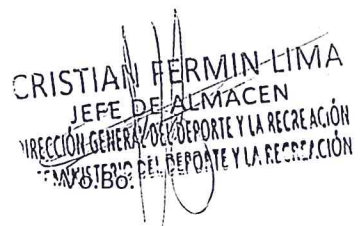 CRISTIAN FERMIN LIMA
JEFE DE ALMACEN
DIRECCIÓN GENERAL DEL DEPORTE Y LA RECREACIÓN
MINISTERIO DEL DEPORTE Y LA RECREACIÓN
Vo.Bo.